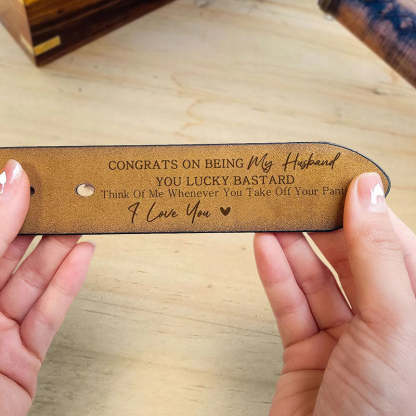 CONGRATS ON BEING My Husband
YOU LUCKY BASTARD
Think Of Me Whenever You Take Off Your Pant
I Love You